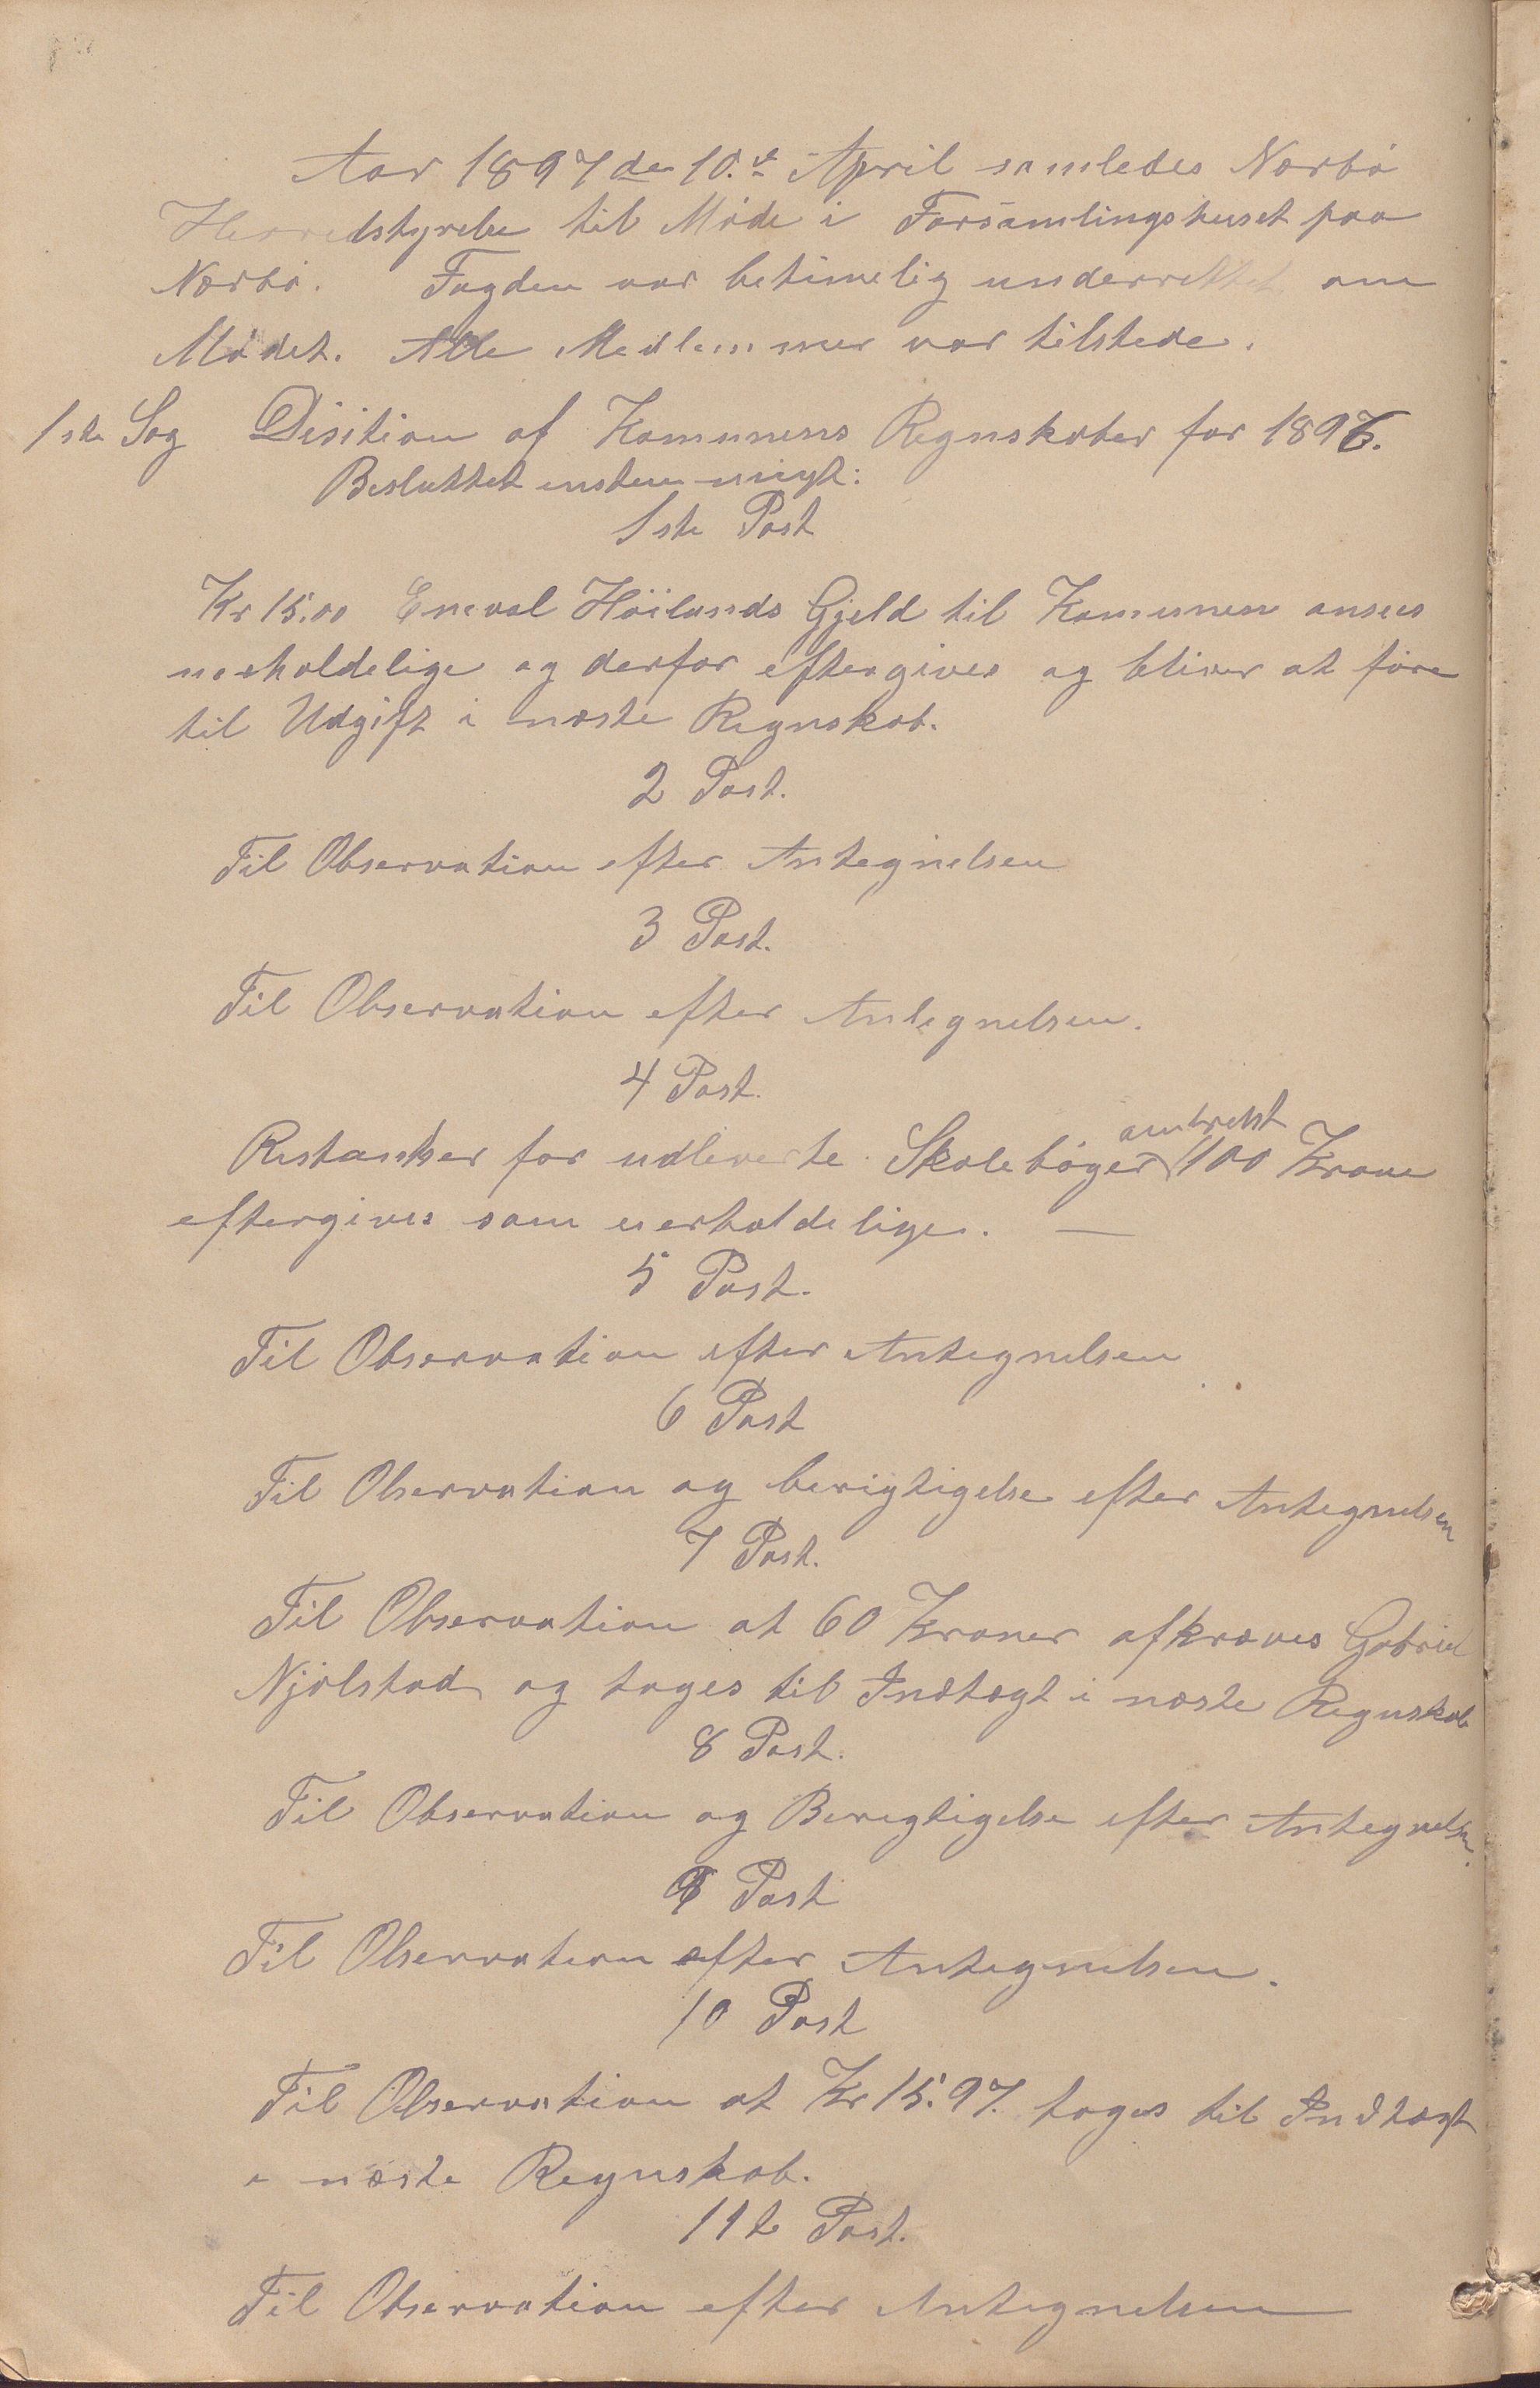 Aar 1897 den 10.de April samledes Nærbø
Herredstyrelse til Møde i Forsamlingshuset paa
Nærbø. Fogden var betimelig underrettet om
Mødet. Alle Medlemmer var tilstede.
1ste Sag Disition af Komunens Regnskaber for 1896.
Besluttet enstemmigt:
1ste Post
Kr 15.00 Eneval Høilands Gjeld til Komunen ansees
uerholdelige og derfor eftergives og bliver at føre
til Udgift i næste Regnskab.
2 Post.
Til Observation efter Antegnelsen
3 Post.
Til Observation efter Antegnelsen.
4 Post.
Restantser for udleverte Skolebøger omtrelst 100 Krone
eftergives som uerholdelige. —
5 Post.
Til Observation efter Antegnelsen
6 Post
Til Observation og berigtigelse efter Antegnelsen
7 Post.
Til Observation at 60 Kroner afkræves Gabriel
Njølstad og tages til Indtægt i næste Regnskab
8 Post.
Til Observation og Beregtigelse efter Antegnelsen.
9 Post
Til Observation efter Antegnelsen.
10 Post
Til Observation at Kr 15.97. tages til Indtægt
i næste Regnskab.
11te Post.
Til Observation efter Antegnelsen